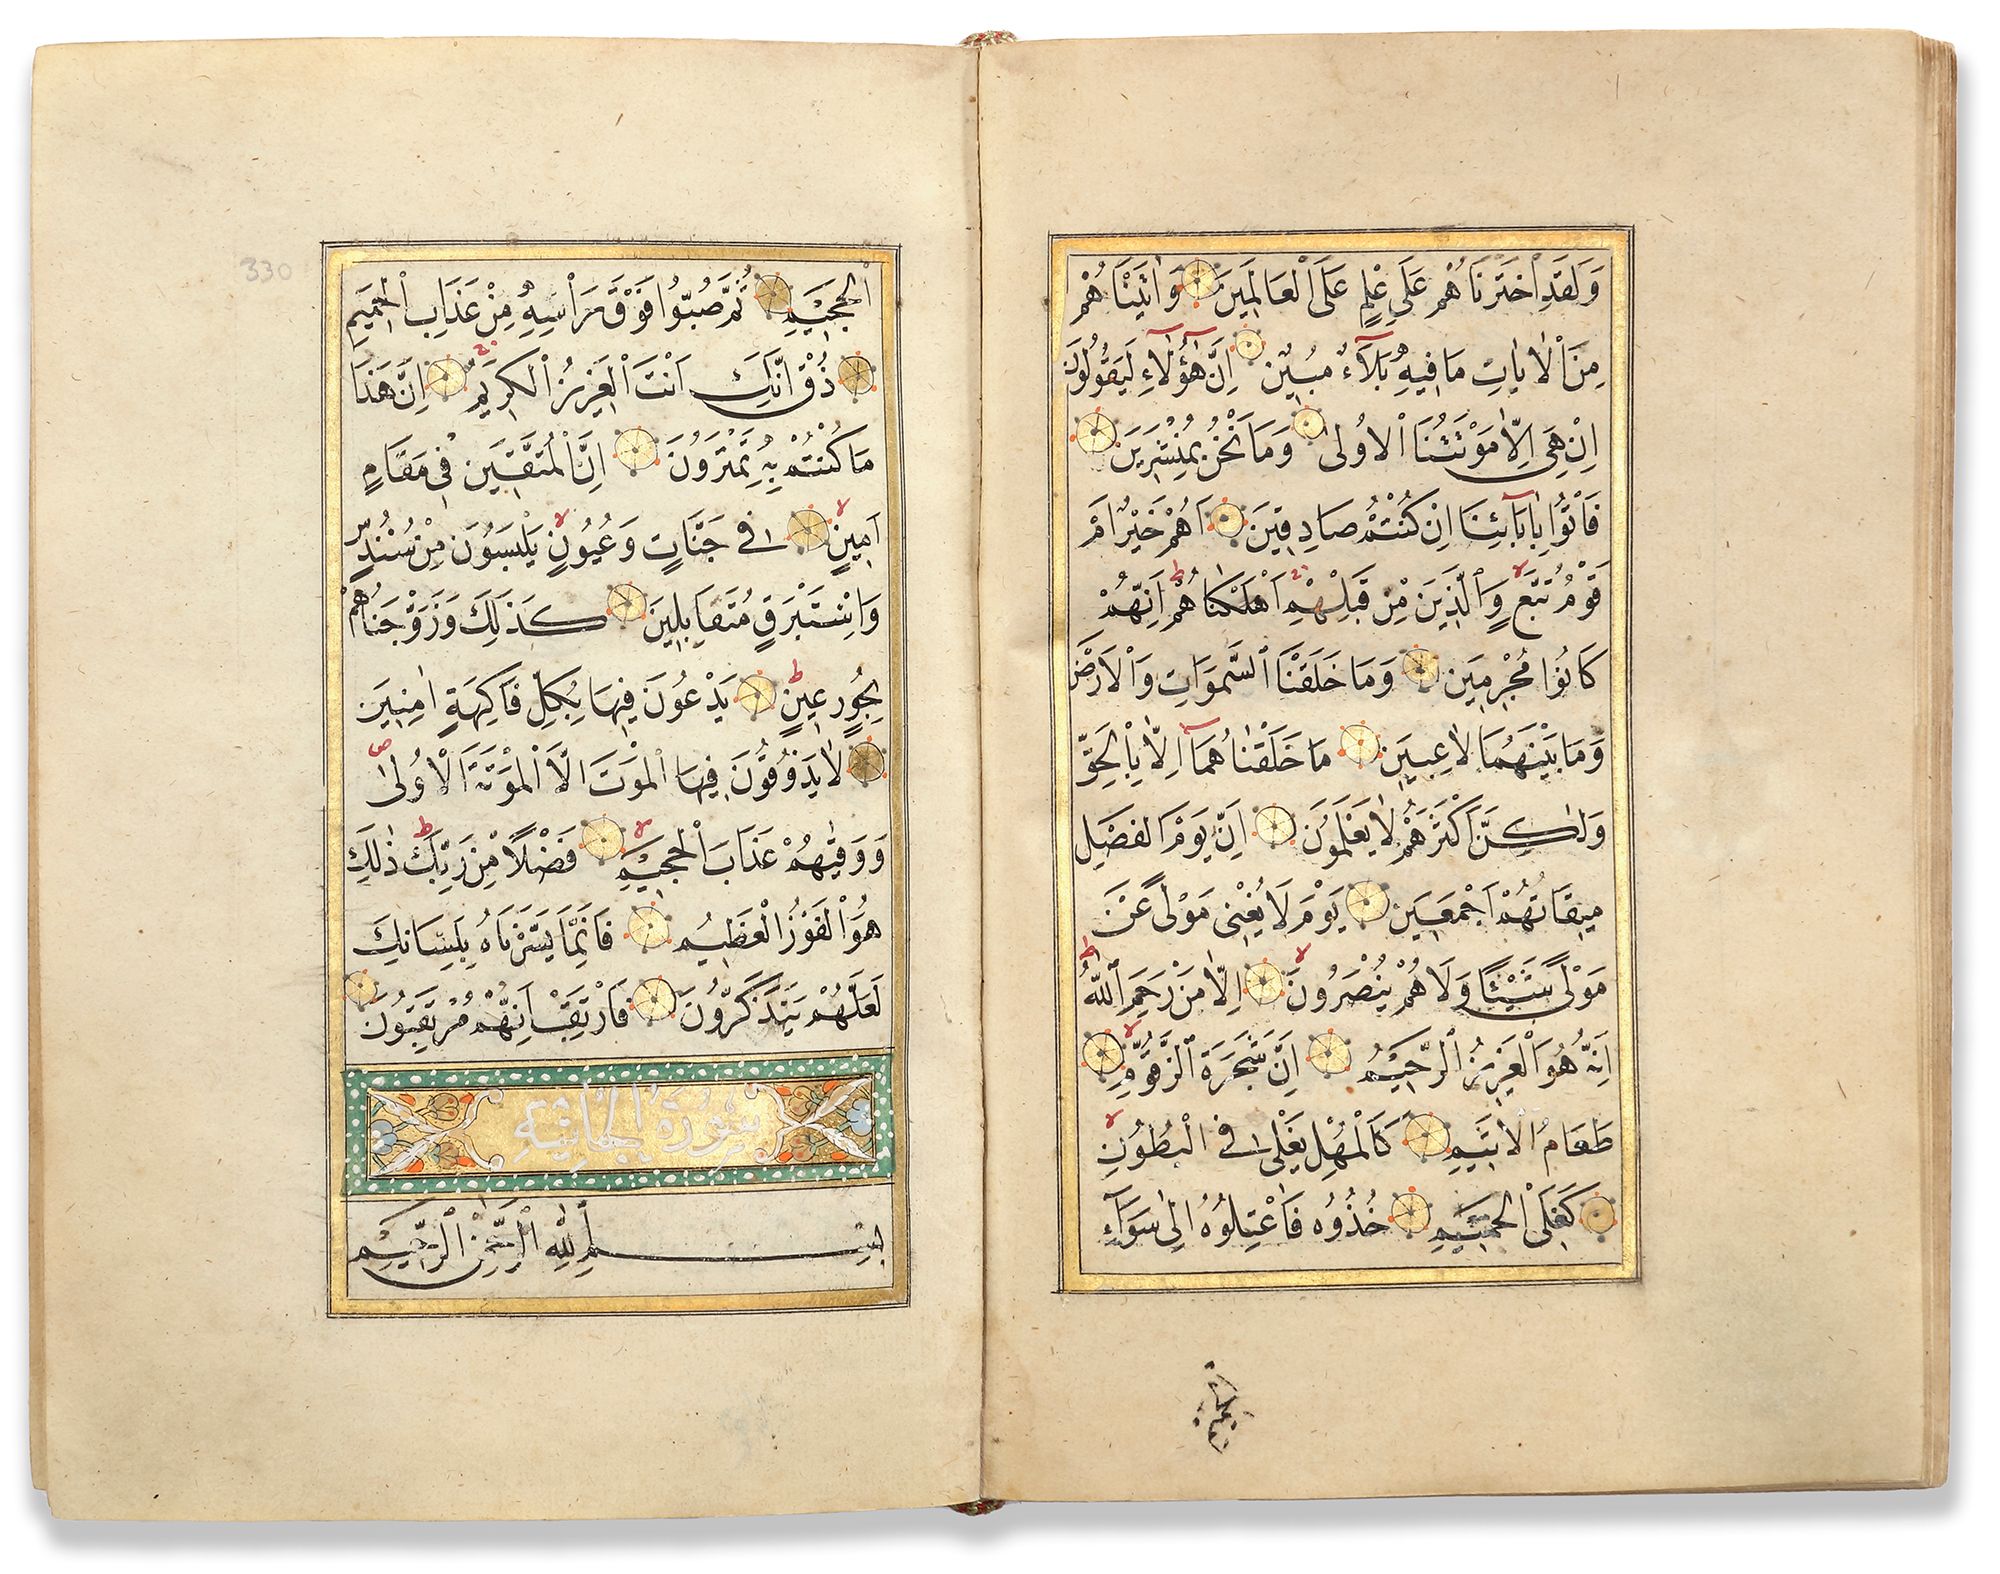 وَلَقَدِ اخْتَرْنَاهُمْ عَلَى عِلْمٍ عَلَى الْعَالَمِينَ وَاٰتَيْنَاهُمْ
مِنَ الْاٰيَاتِ مَا فِيهِ بَلَاءٌ مُبِينٌ اِنَّ هٰؤُلَاءِ لَيَقُولُونَ
اِنْ هِيَ اِلَّا مَوْتَتُنَا الْاُولٰى وَمَا نَحْنُ بِمُنْشَرِينَ
فَاْتُوا بِاٰبَائِنَا اِنْ كُنْتُمْ صَادِقِينَ اَهُمْ خَيْرٌ اَمْ
قَوْمُ تُبَّعٍ وَالَّذِينَ مِنْ قَبْلِهِمْ اَهْلَكْنَاهُمْ اِنَّهُمْ
كَانُوا مُجْرِمِينَ وَمَا خَلَقْنَا السَّمٰوَاتِ وَالْاَرْضَ
وَمَا بَيْنَهُمَا لَاعِبِينَ مَا خَلَقْنَاهُمَا اِلَّا بِالْحَقِّ
وَلٰكِنَّ اَكْثَرَهُمْ لَا يَعْلَمُونَ اِنَّ يَوْمَ الْفَصْلِ
مِيقَاتُهُمْ اَجْمَعِينَ يَوْمَ لَا يُغْنِي مَوْلًى عَنْ
مَوْلًى شَيْئًا وَلَا هُمْ يُنْصَرُونَ اِلَّا مَنْ رَحِمَ اللّٰهُ
اِنَّهُ هُوَ الْعَزِيزُ الرَّحِيمُ اِنَّ شَجَرَةَ الزَّقُّومِ
طَعَامُ الْاَثِيمِ كَالْمُهْلِ يَغْلِي فِي الْبُطُونِ
كَغَلْيِ الْحَمِيمِ خُذُوهُ فَاعْتِلُوهُ اِلٰى سَوَاءِ
الجحيم
330
الْجَحِيمِ ثُمَّ صُبُّوا فَوْقَ رَاْسِهِ مِنْ عَذَابِ الْحَمِيمِ
ذُقْ اِنَّكَ اَنْتَ الْعَزِيزُ الْكَرِيمُ اِنَّ هٰذَا
مَا كُنْتُمْ بِهِ تَمْتَرُونَ اِنَّ الْمُتَّقِينَ فِي مَقَامٍ
اَمِينٍ فِي جَنَّاتٍ وَعُيُونٍ يَلْبَسُونَ مِنْ سُنْدُسٍ
وَاِسْتَبْرَقٍ مُتَقَابِلِينَ كَذٰلِكَ وَزَوَّجْنَاهُمْ
بِحُورٍ عِينٍ يَدْعُونَ فِيهَا بِكُلِّ فَاكِهَةٍ اٰمِنِينَ
لَا يَذُوقُونَ فِيهَا الْمَوْتَ اِلَّا الْمَوْتَةَ الْاُولٰى
وَوَقٰيهُمْ عَذَابَ الْجَحِيمِ فَضْلًا مِنْ رَبِّكَ ذٰلِكَ
هُوَ الْفَوْزُ الْعَظِيمُ فَاِنَّمَا يَسَّرْنَاهُ بِلِسَانِكَ
لَعَلَّهُمْ يَتَذَكَّرُونَ فَارْتَقِبْ اِنَّهُمْ مُرْتَقِبُونَ
سورة الجاثية
بِسْمِ اللّٰهِ الرَّحْمٰنِ الرَّحِيمِ